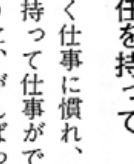 任を持って
く仕事に慣れ、
持って仕事がで